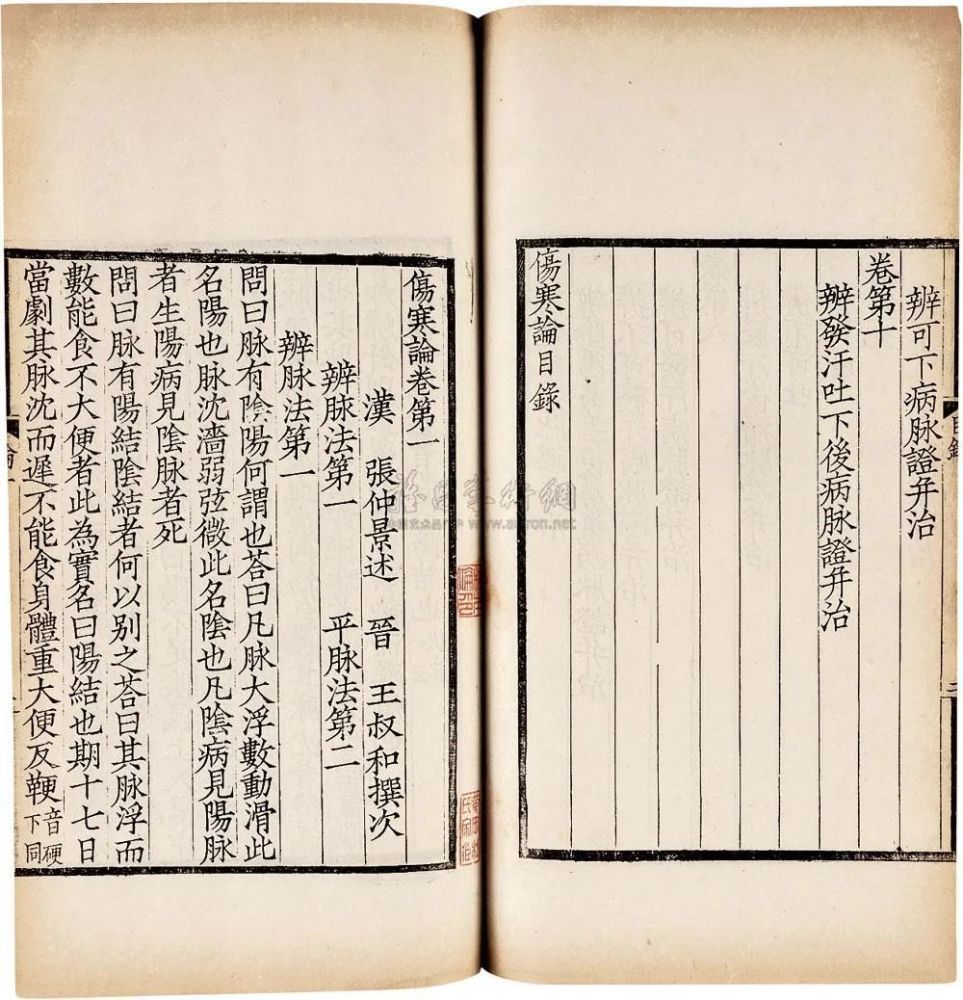 辨可下病脉證并治
卷第十
辨發汗吐下後病脉證并治
傷寒論目錄
傷寒論卷第一
漢 張仲景述 晉 王叔和撰次
辨脉法第一 平脉法第二
辨脉法第一
問曰脉有陰陽何謂也荅曰凡脉大浮數動滑此
名陽也脉沈濇弱弦微此名陰也凡陰病見陽脉
者生陽病見陰脉者死
問曰脉有陽結陰結者何以别之荅曰其脉浮而
數能食不大便者此為實名曰陽結也期十七日
當劇其脉沈而遲不能食身體重大便反鞕音硬下同
目錄
二
論一
www.artron.net